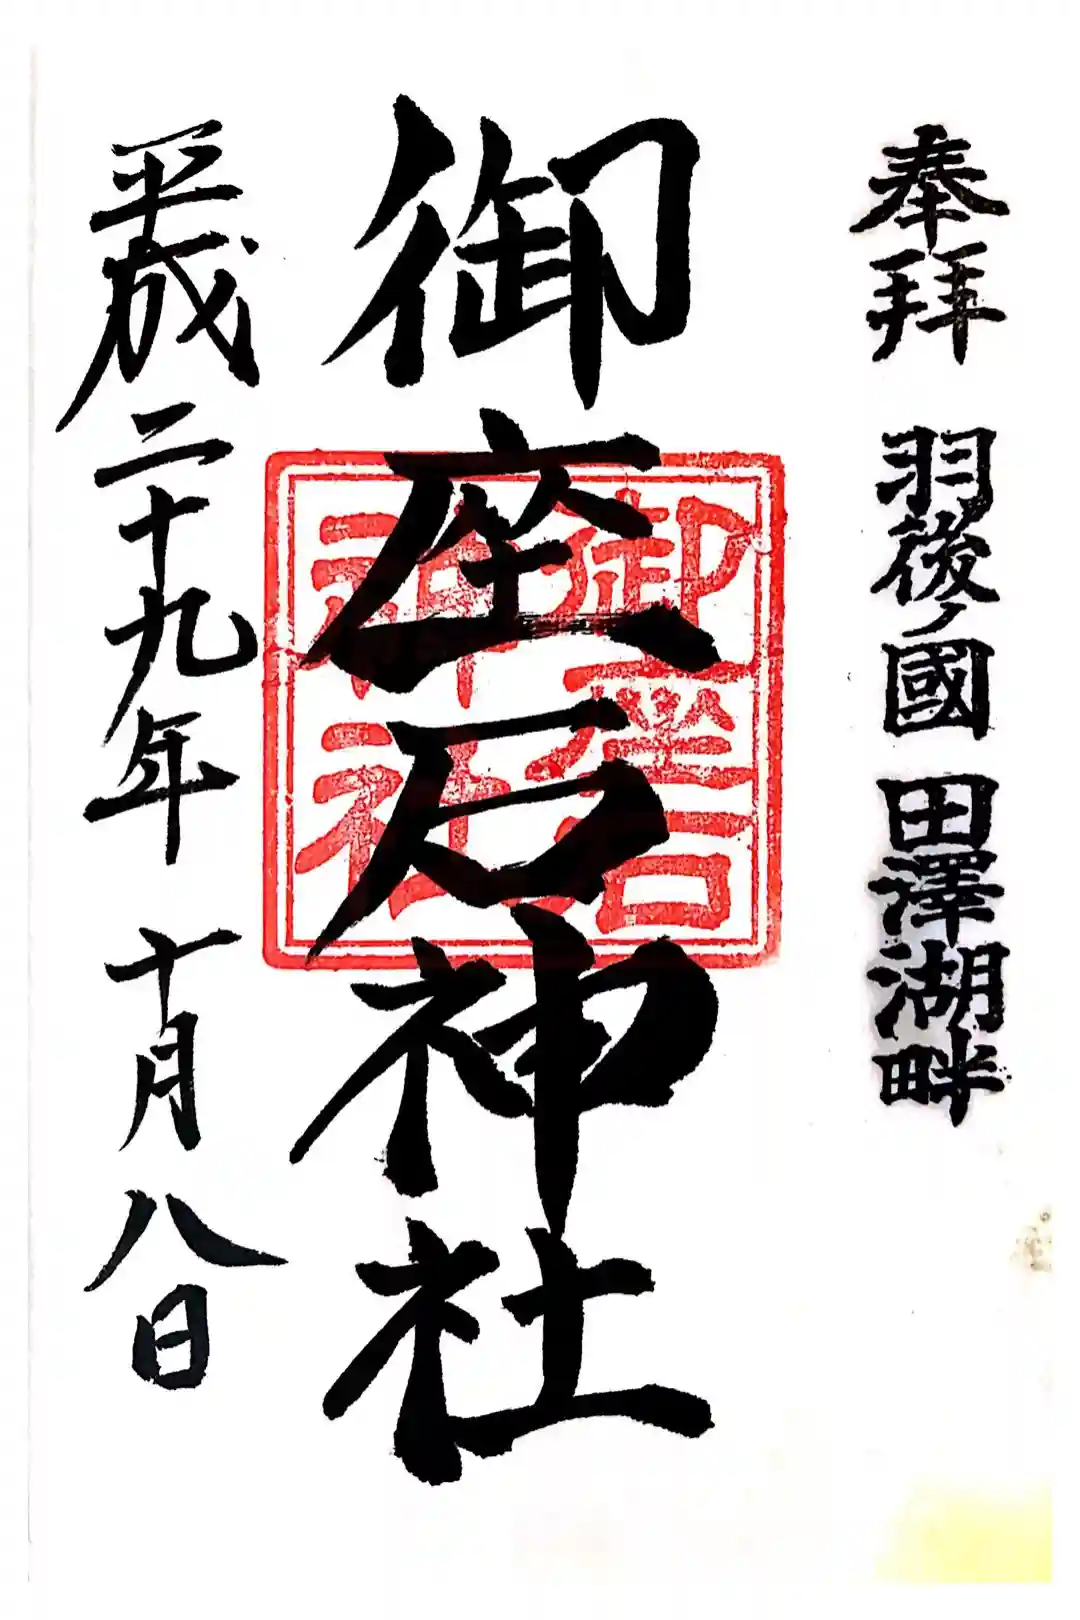 奉拝 羽後ノ國 田澤湖畔
御座石神社
御座石神社
平成二十九年 十月 八日